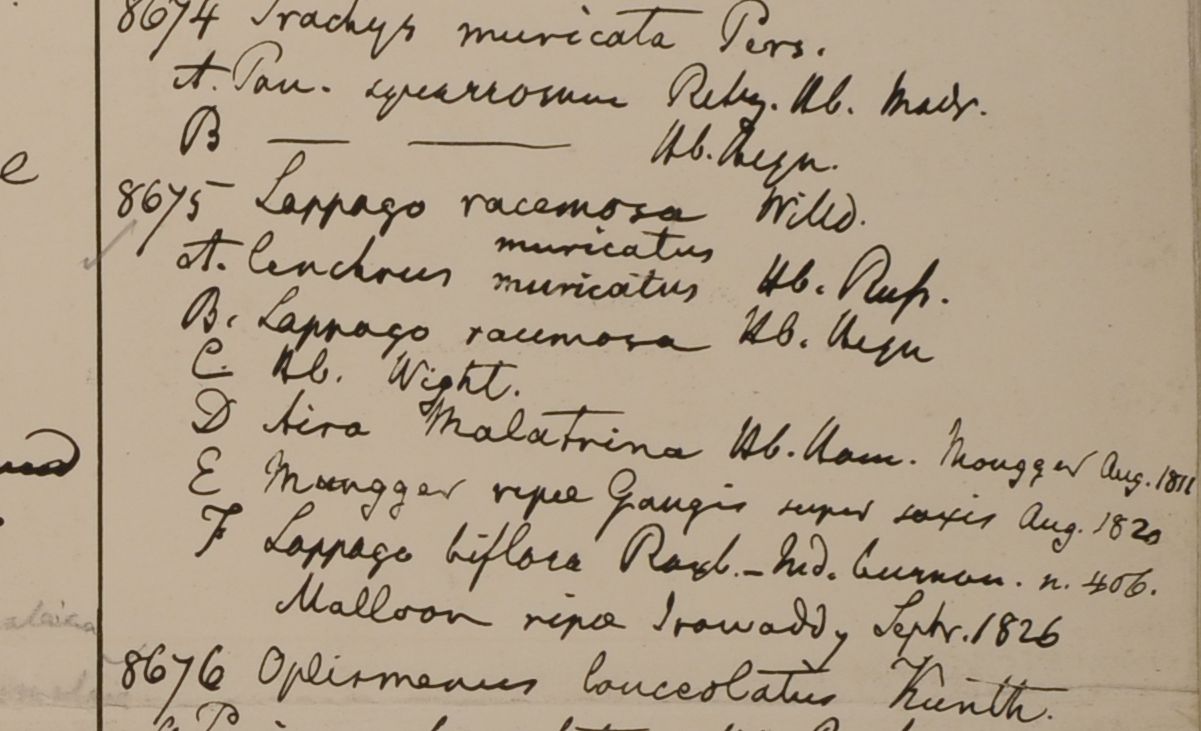 8674 Trachys muricata Pers.
A. Pan. squarrosum Retz. Hb. Madr.
B — —— Hb. Heyn.
8675 Lappago racemosa Willd.
muricatus
A. Cenchrus muricatus Hb. Rufs.
B. Lappago racemosa Hb. Heyn
C. Hb. Wight.
D Aira Malatrina Hb. Ham. Mongger Aug. 1811
E Mungger ripae Gangis super saxis Aug. 1820
F Lappago biflora Roxb. – Ind. Gurnou. n. 406.
Malloon ripae Irawaddy Septr. 1826
8676 Oplismenus lanceolatus Kunth.